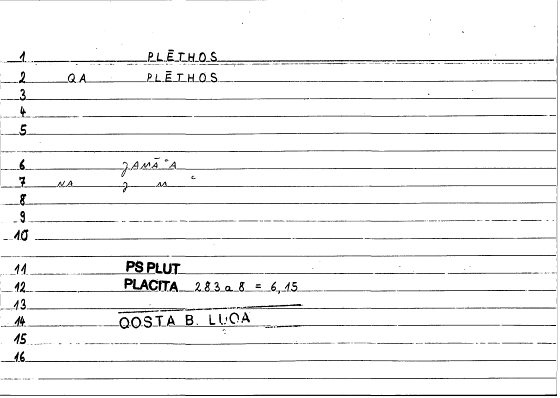 1 PLĒTHOS
2 QA PLĒTHOS
3
4
5
6 ǧAMĀʿA
7 NA ǧ M ʿ
8
9
10
11 PS PLUT
12 PLACITA 283 a 8 = 6,15
13
14 QOSTA B. LUQA
15
16